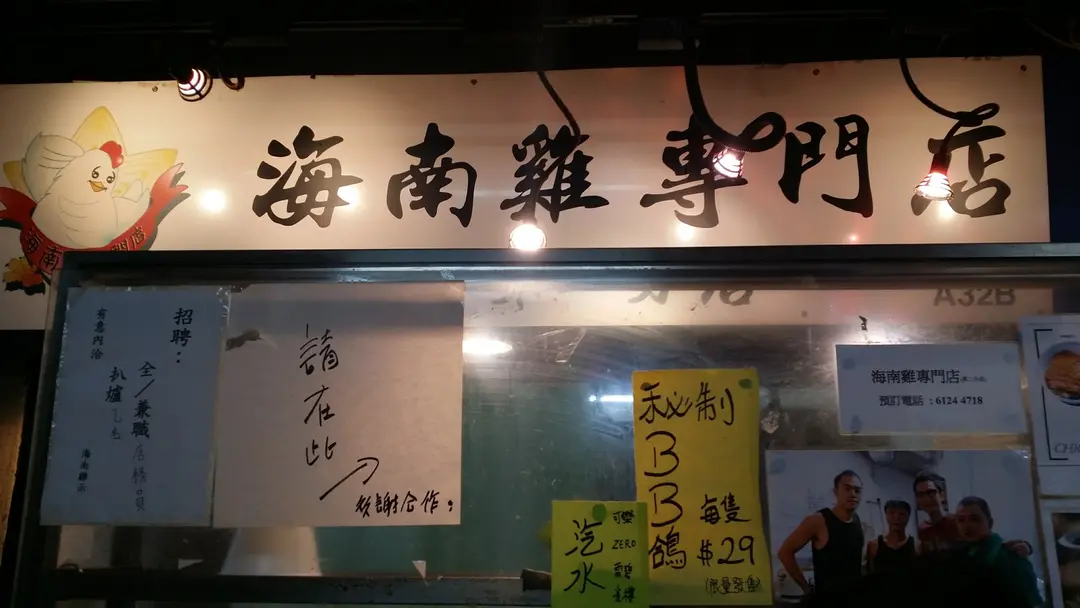 海南雞專門店
A32B
招聘:
全/兼職店務員
扒爐
有意內洽
海南雞示
請在此
多謝合作:
秘制
BB鴿
每隻
$29
(限量發售)
汽水
可樂
ZERO
海南雞專門店
預訂電話 : 6124 4718